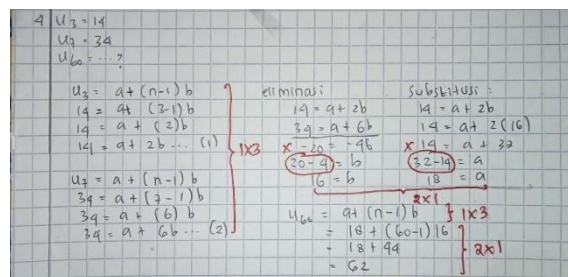 4 U3 = 14
U7 = 34
U60 = ... ?
U3 = a + (n-1) b
14 = a + (3-1) b
14 = a + (2) b
14 = a + 2b ... (1)
1x3
U7 = a + (n-1) b
34 = a + (7-1) b
34 = a + (6) b
34 = a + 6b ... (2)
eliminasi
14 = a + 2b
34 = a + 6b
x -20 = -4b
20 - 4 = b
16 = b
Substitusi :
14 = a + 2b
14 = a + 2(16)
x 14 = a + 32
32-14 = a
18 = a
2x1
U60 = a + (n-1) b } 1x3
= 18 + (60-1) 16
= 18 + 44
= 62
2x1